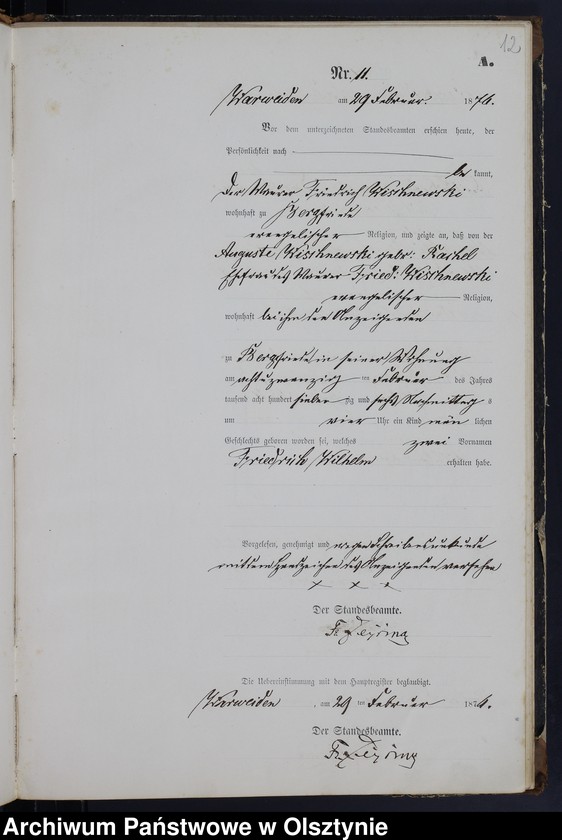 12
A.
Nr. 11.
Warweiden am 29 Februar. 1876.
Vor dem unterzeichneten Standesbeamten erschien heute, der
Persönlichkeit nach
be kannt,
der Maurer Friedrich Wischnewski
wohnhaft zu Bergfriede
evangelischer Religion, und zeigte an, daß von der
Auguste Wischnewski gebr: Rachel
Ehefrau des Maurer Fried: Wischnewski
evangelischer Religion,
wohnhaft bei ihm dem Anzeigenden
zu Bergfriede in seiner Wohnung
am achtundzwanzig ten Februar des Jahres
tausend acht hundert sieben zig und sechs Nachmittag s
um vier Uhr ein Kind män lichen
Geschlechts geboren worden sei, welches zwei Vornamen
Friedrich Wilhelm erhalten habe.
Vorgelesen, genehmigt und wegen Schreibensunkunde
mit dem Handzeichen des Anzeigenden versehen
+ + +
Der Standesbeamte.
Die Uebereinstimmung mit dem Hauptregister beglaubigt.
Warweiden am 29 ten Februar 1876.
Der Standesbeamte.
Archiwum Państwowe w Olsztynie